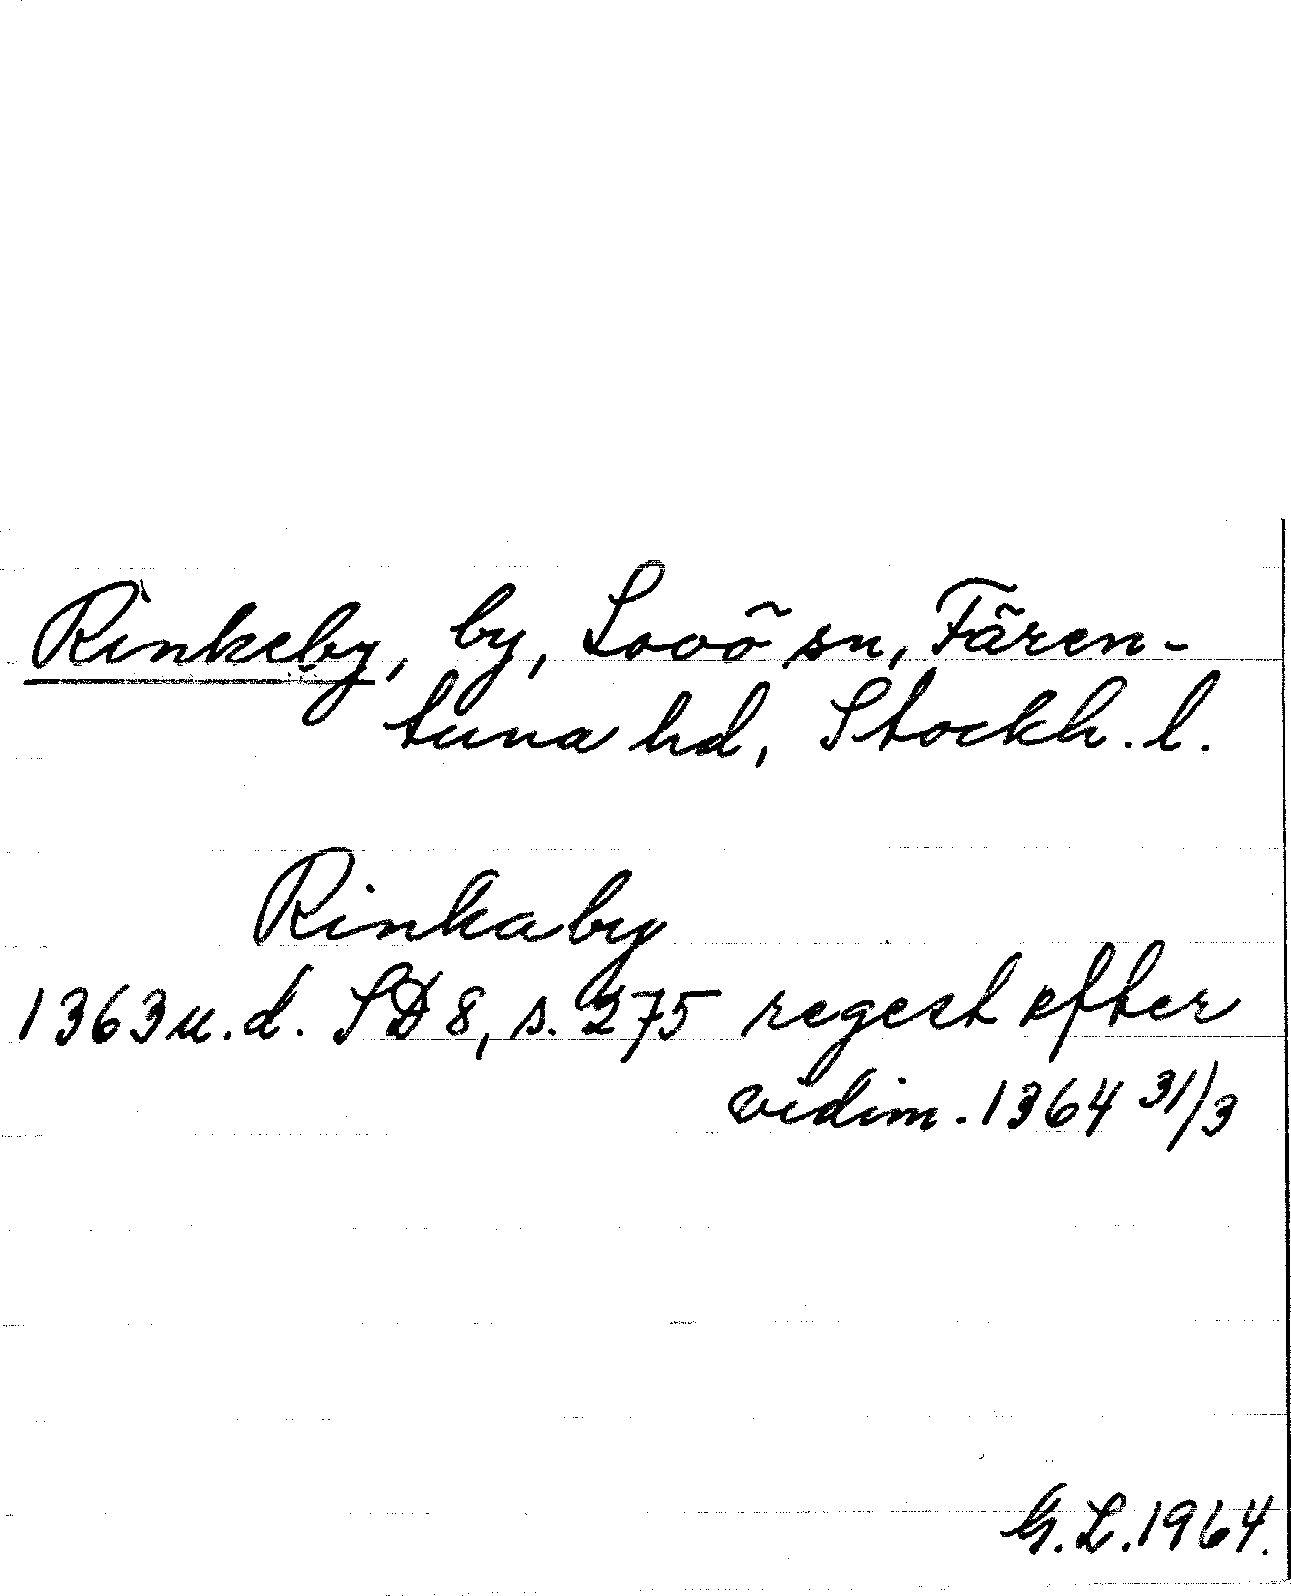 Rinkeby, by, Lovö sn, Fären-
tuna hd, Stockh. l.
Rinkaby
1363 u. d. SD 8, s. 275 regest efter
vidim. 1364 31/3
G. L. 1964.